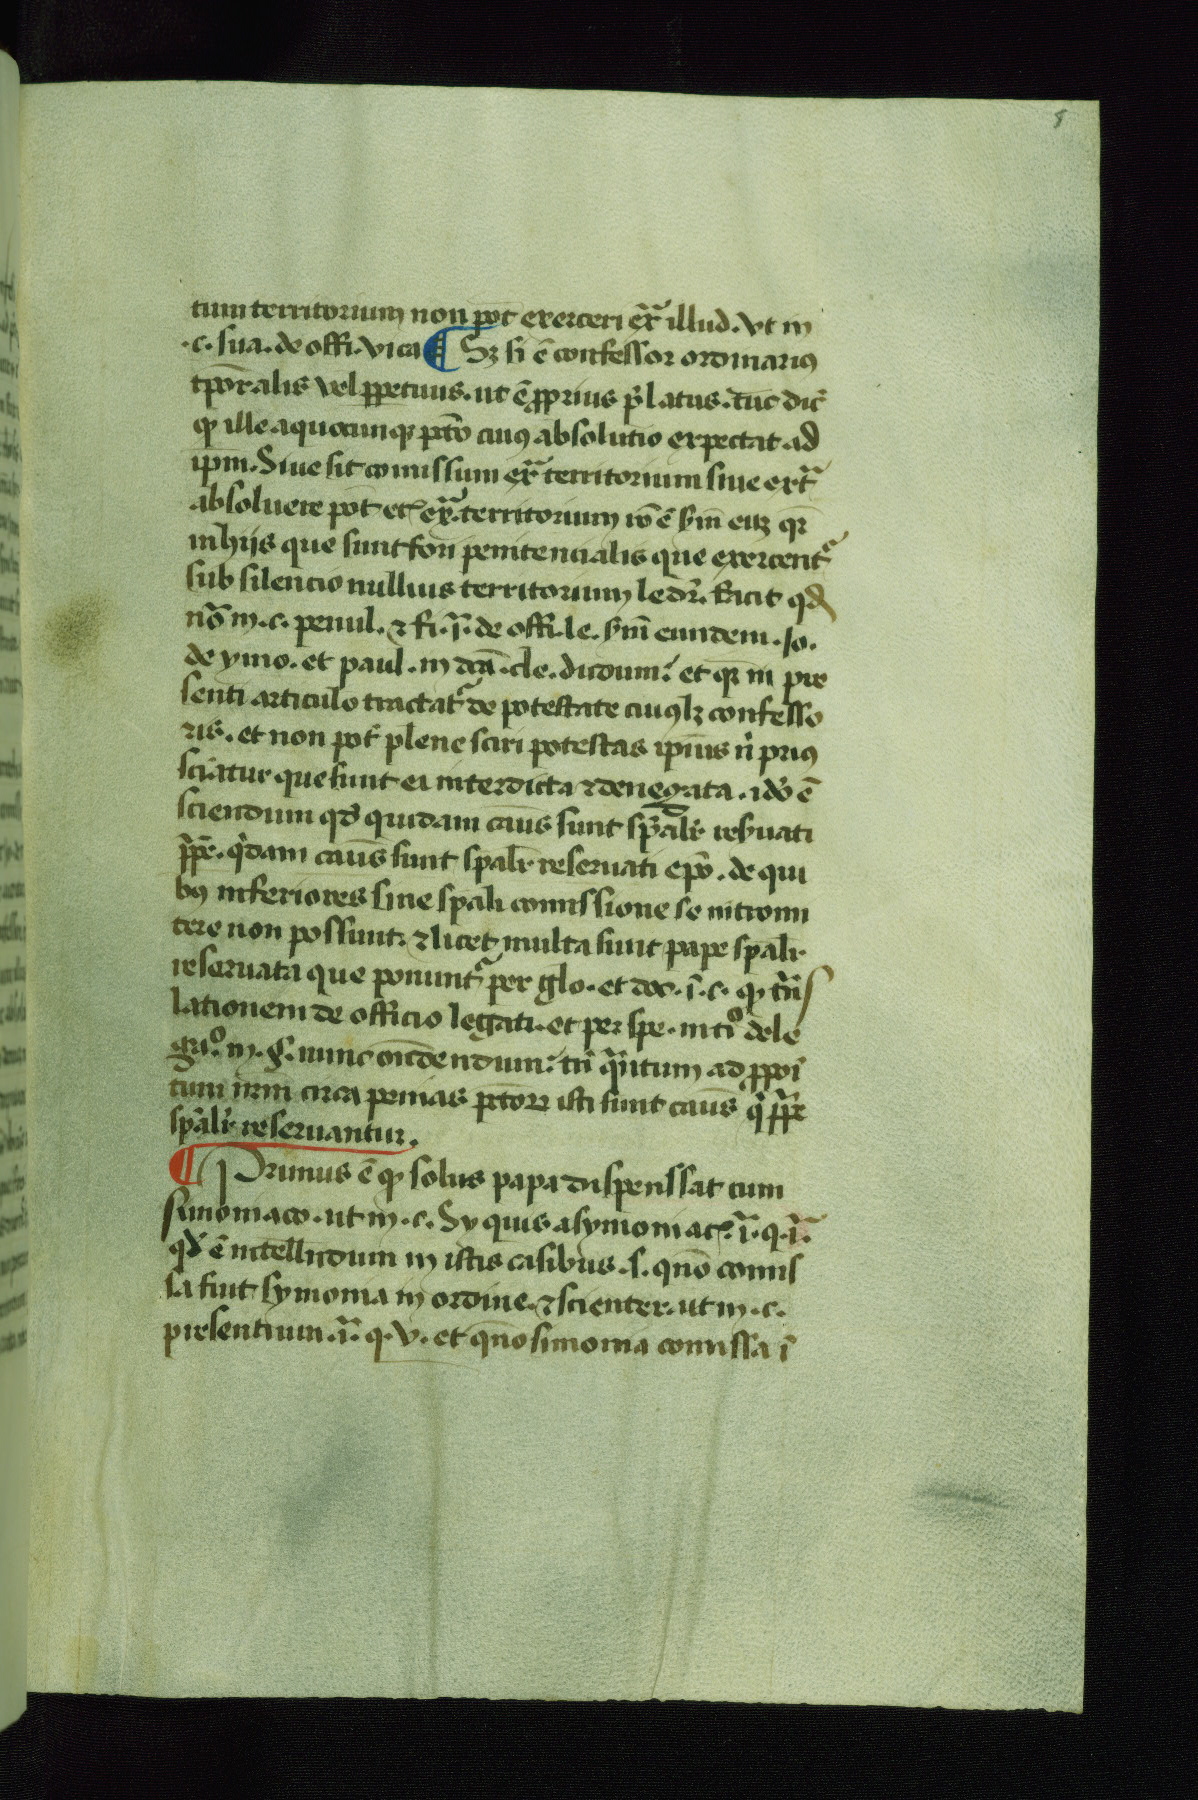 8
tum territorium non pot̄ exerceri ex̄ᵃ illud. vt in
.c. sua. de offi. vica ¶ Sꝫ si ē confessor ordinariꝯ
tp̄oralis vel ꝑpetuus. ut ē ꝓprius p̄latus. tūc dic̄
ꝙ ille a quocunqꝫ pctō cuiꝯ absolutio expectat ad
ip̄m. Siue sit comissum ex̄ᵃ territorium siue extᵃ̄
absoluere pot̄ etc̄ ex̄ᵃ. territorium iō ē sm̄ euꝫ qꝛ
in hijs que sunt fori penitencialis que exercent᷑
sub silencio nullius territorium ledr̄. facit qd̄
nō in .c. penul. ⁊ fi. i̅. de offi. le. sm̄ eundem. Jo.
de ymo. et paul. in dcā. cle. dudum. et qꝛ in pre
senti articulo tractat᷑ de potestate cuiꝯlꝫ confesso
ris. et non pot̄ plene sciri potestas ip̄ius n̄ priꝯ
sciatur que sunt ei interdicta ⁊ denegata. idō ē
sciendum qd̄ quidam casus sunt sp̄alr̄ reseruati
pp̄e. qͥdam casus sunt spalr̄ reseruati ep̄o. de qui
bꝯ inferiores sine sp̄ali comissione se intromi
tere non possunt. ⁊ licet multa sunt pape spalr̄
reseruata que ponunt᷑ per glo. et doc. i̅. c. ꝙ trās
lationem de officio legati. et per spe. in tiᵒ dele
gatᵒ. in .§. nunc on̄dendum. tn̄ qᵃntum ad ꝓpoi̅
tum nr̄m circa penias pctōꝝ isti sunt casus qͥ pp̄e
sp̄alr̄ reseruantur.
¶ Primus ē ꝙ solus papa dispenssat cum
simoniaco. ut in .c. Sy quis a symoniac̄. i̅. q. i̅.
qd̄ ē intelligdum in istis casibus .s. qn̄o comis
sa fiut symonia in ordine. ⁊ scienter. ut in .c.
presentium. i̅. q. v. et qn̄o simonia comissa i̅